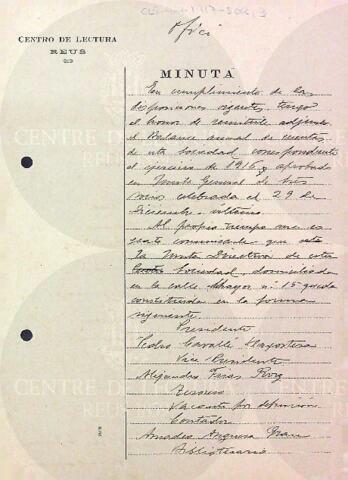 Ofici
CENTRO DE LECTURA
REUS
MINUTA
En cumplimiento de las
disposiciones vigentes, tengo
el honor de remitirle adjunto
el Balance anual de cuentas
de esta Sociedad correspondiente
al ejercicio de 1916 y aprobado
en Junta General de
socios celebrada el 29 de
Diciembre último.
Al propio tiempo me es
grato comunicarle que
la Junta Directiva de esta
Sociedad, domiciliada
en la calle Mayor nº 15 queda
constituida en la forma
siguiente
Presidente
Pedro Cavallé
Vice-Presidente
Alejandro Roig
Tesorero
Vacante por defunción
Contador
Amadeo
Bibliotecario